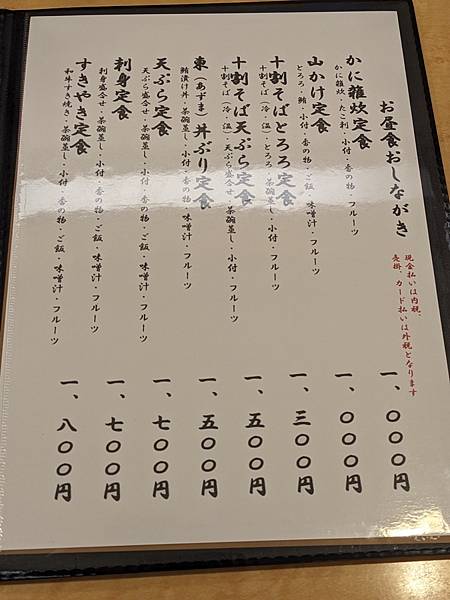 お昼食おしながき
現金払いは内税、
売掛、カード払いは外税となります
かに雑炊定食
かに雑炊・たこ刺・小付・香の物・フルーツ
一、〇〇〇円
山かけ定食
とろろ・鮪・小付・香の物・ご飯・味噌汁・フルーツ
一、〇〇〇円
十割そばとろろ定食
十割そば（冷・温）・とろろ・茶碗蒸し・小付・フルーツ
一、三〇〇円
十割そば天ぷら定食
十割そば（冷・温）・天ぷら盛合せ・茶碗蒸し・小付・フルーツ
一、五〇〇円
東（あずま）丼ぶり定食
鮪漬け丼・茶碗蒸し・小付・香の物・味噌汁・フルーツ
一、五〇〇円
天ぷら定食
天ぷら盛合せ・茶碗蒸し・小付・香の物・ご飯・味噌汁・フルーツ
一、七〇〇円
刺身定食
刺身盛合せ・茶碗蒸し・小付・香の物・ご飯・味噌汁・フルーツ
一、七〇〇円
すきやき定食
和牛すき焼き・茶碗蒸し・小付・香の物・ご飯・味噌汁・フルーツ
一、八〇〇円